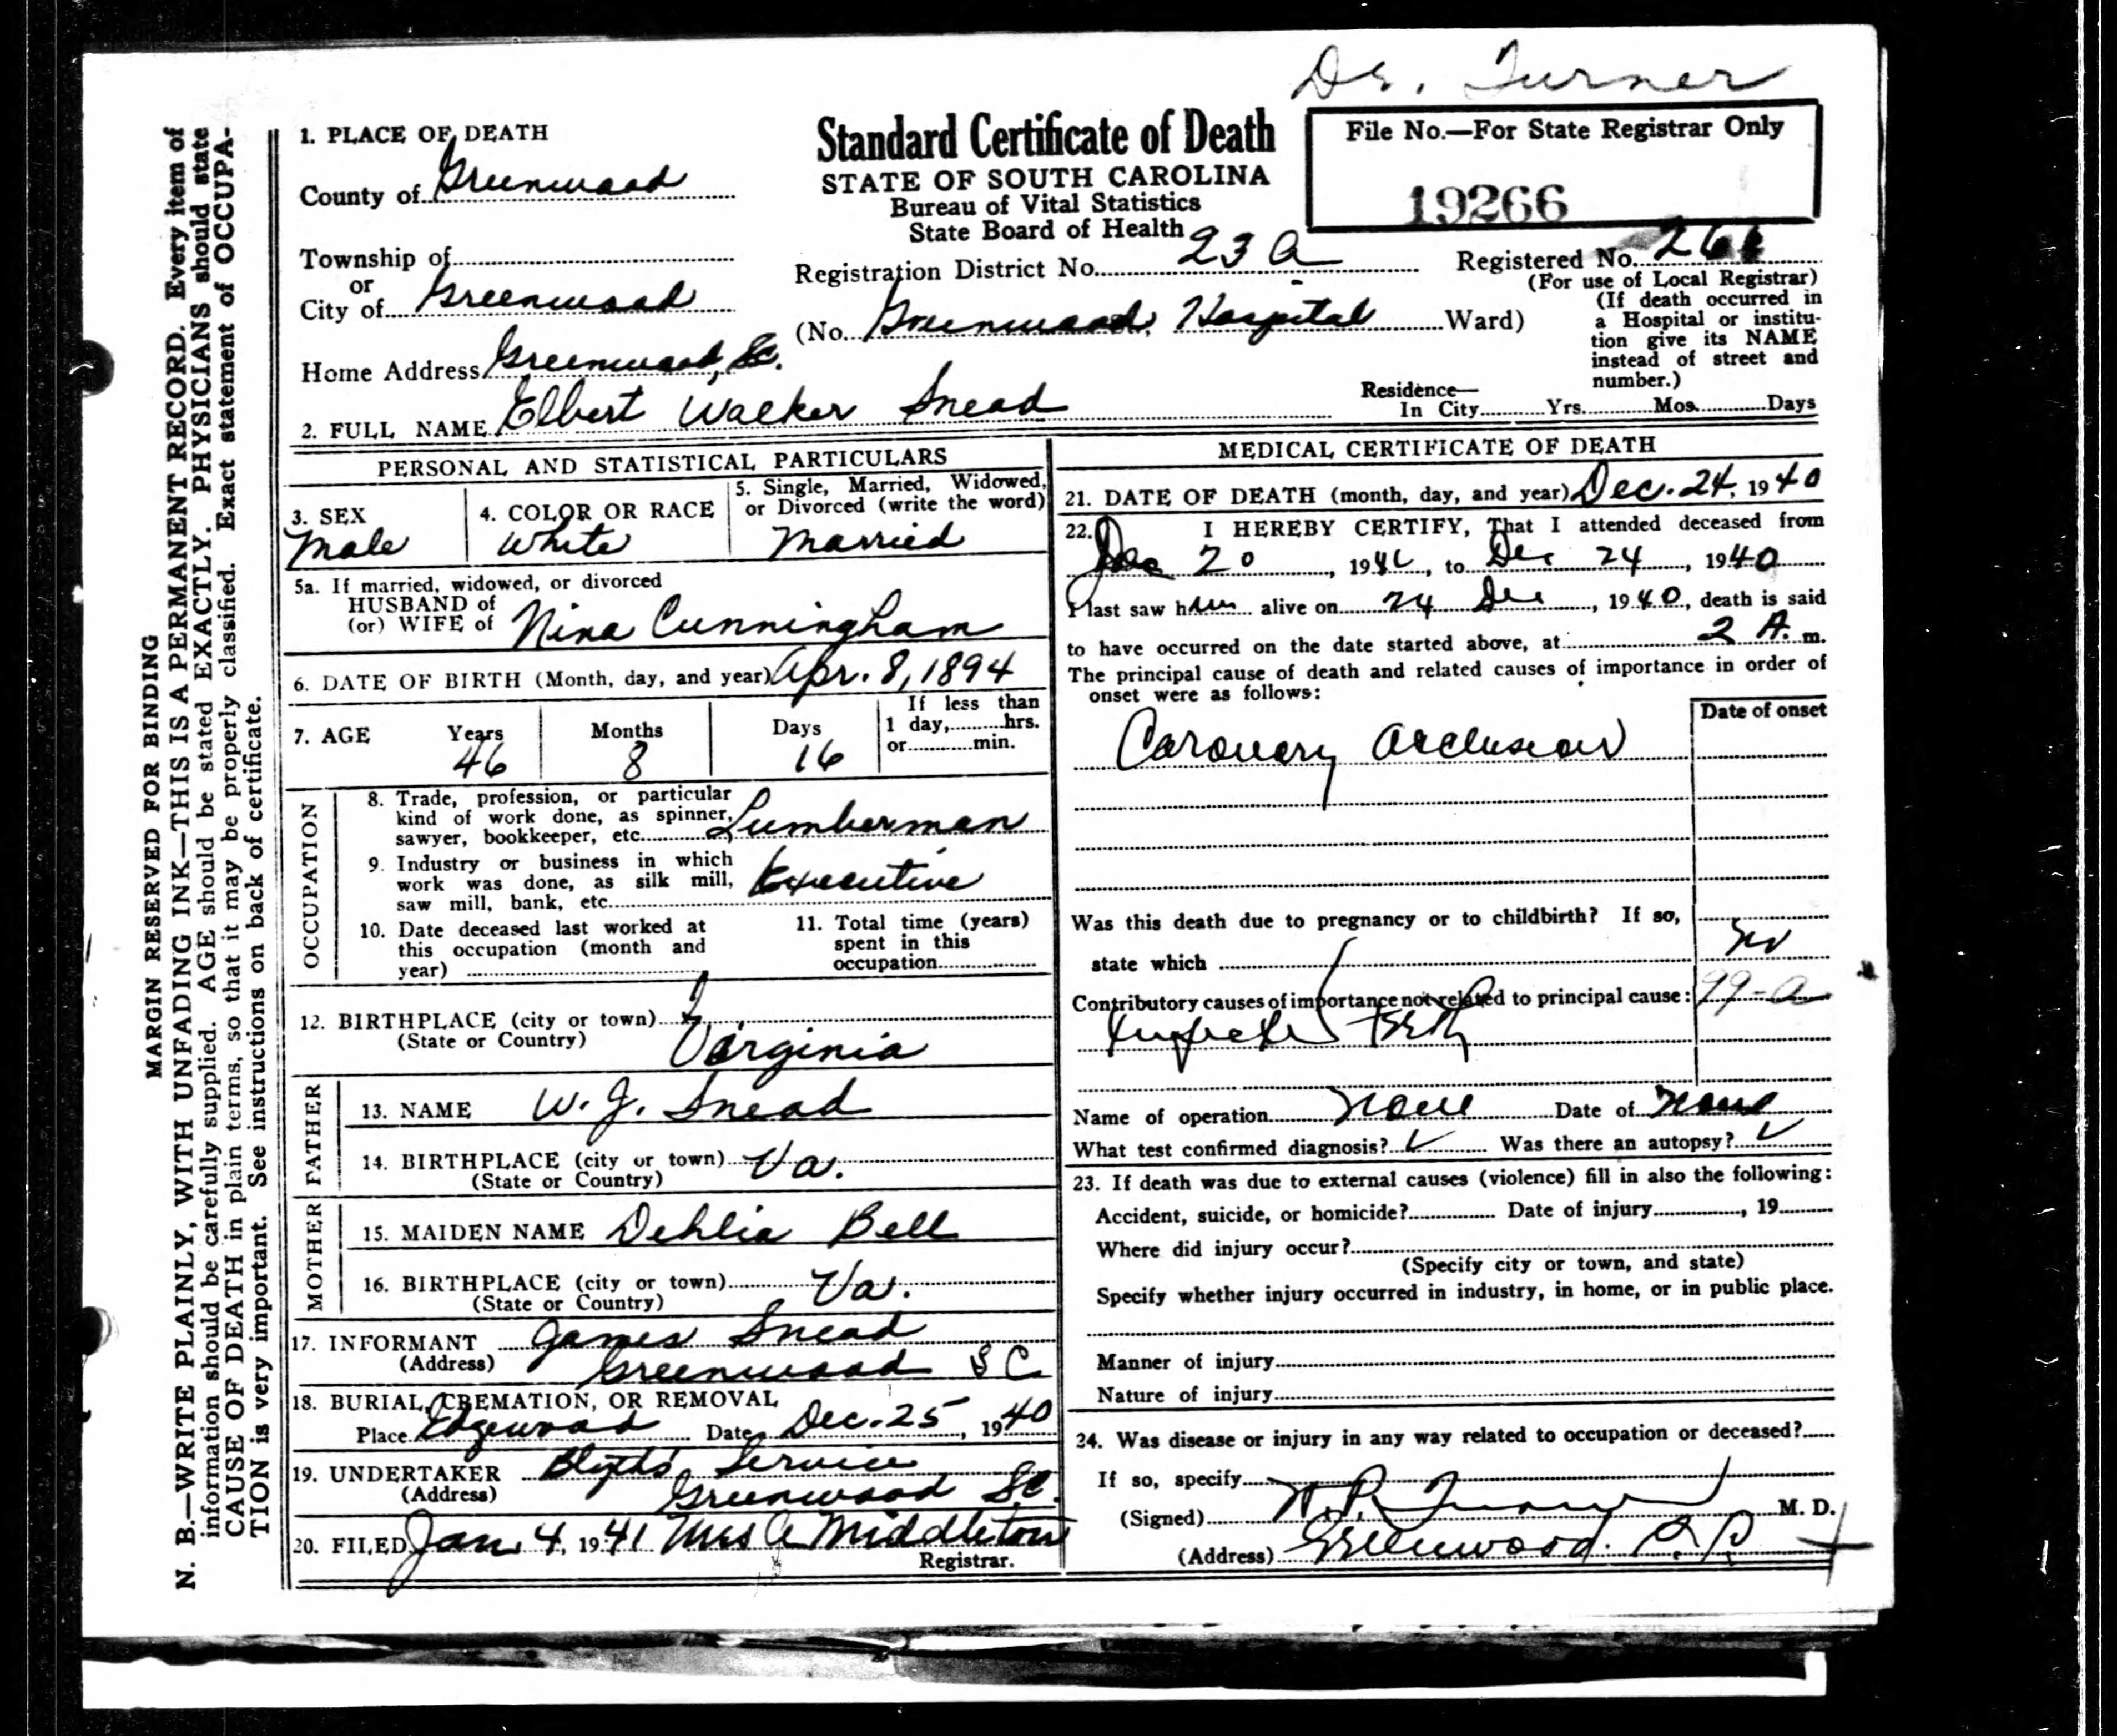 Dr. Turner
1. PLACE OF DEATH
County of Greenwood
Township of
or
City of Greenwood
Home Address Greenwood, S.C.
Standard Certificate of Death
STATE OF SOUTH CAROLINA
Bureau of Vital Statistics
State Board of Health
Registration District No. 23 A
(No. Greenwood, Hospital Ward)
File No.—For State Registrar Only
19266
Registered No.
(For use of Local Registrar)
(If death occurred in
a Hospital or institu-
tion give its NAME
instead of street and
number.)
2. FULL NAME Elbert Walker Snead
Residence—
In City Yrs. Mos. Days
PERSONAL AND STATISTICAL PARTICULARS
3. SEX
Male
4. COLOR OR RACE
White
5. Single, Married, Widowed,
or Divorced (write the word)
Married
5a. If married, widowed, or divorced
HUSBAND of
(or) WIFE of Nina Cunningham
6. DATE OF BIRTH (Month, day, and year) Apr. 8, 1894
7. AGE Years Months Days
46 8 16
If less than
1 day, hrs.
or min.
OCCUPATION
8. Trade, profession, or particular
kind of work done, as spinner,
sawyer, bookkeeper, etc. Lumberman
9. Industry or business in which
work was done, as silk mill,
saw mill, bank, etc. Executive
10. Date deceased last worked at
this occupation (month and
year)
11. Total time (years)
spent in this
occupation
12. BIRTHPLACE (city or town)
(State or Country) Virginia
FATHER
13. NAME W. J. Snead
14. BIRTHPLACE (city or town) Va.
(State or Country)
MOTHER
15. MAIDEN NAME Dehlia Bell
16. BIRTHPLACE (city or town) Va.
(State or Country)
17. INFORMANT James Snead
(Address) Greenwood S C
18. BURIAL, CREMATION, OR REMOVAL
Place Edgewood Date Dec. 25, 1940
19. UNDERTAKER Blyth's Service
(Address) Greenwood S.C.
20. FILED Jan. 4, 1941 Mrs A Middleton
Registrar.
MEDICAL CERTIFICATE OF DEATH
21. DATE OF DEATH (month, day, and year) Dec. 24, 1940
22. I HEREBY CERTIFY, That I attended deceased from
Dec 20, 1940, to Dec 24, 1940
I last saw him alive on 24 Dec, 1940, death is said
to have occurred on the date started above, at 2 A. m.
The principal cause of death and related causes of importance in order of
onset were as follows:
Date of onset
Coronary Occlusion
Was this death due to pregnancy or to childbirth? If so,
state which no
Contributory causes of importance not related to principal cause:
Infected Teeth
Name of operation None Date of None
What test confirmed diagnosis? Was there an autopsy?
23. If death was due to external causes (violence) fill in also the following:
Accident, suicide, or homicide? Date of injury, 19
Where did injury occur?
(Specify city or town, and state)
Specify whether injury occurred in industry, in home, or in public place.
Manner of injury
Nature of injury
24. Was disease or injury in any way related to occupation or deceased?
If so, specify
(Signed) Turner M. D.
(Address) Greenwood. S. C.
MARGIN RESERVED FOR BINDING
N. B.—WRITE PLAINLY, WITH UNFADING INK—THIS IS A PERMANENT RECORD. Every item of
information should be carefully supplied. AGE should be stated EXACTLY. PHYSICIANS should state
CAUSE OF DEATH in plain terms, so that it may be properly classified. Exact statement of OCCUPA-
TION is very important. See instructions on back of certificate.